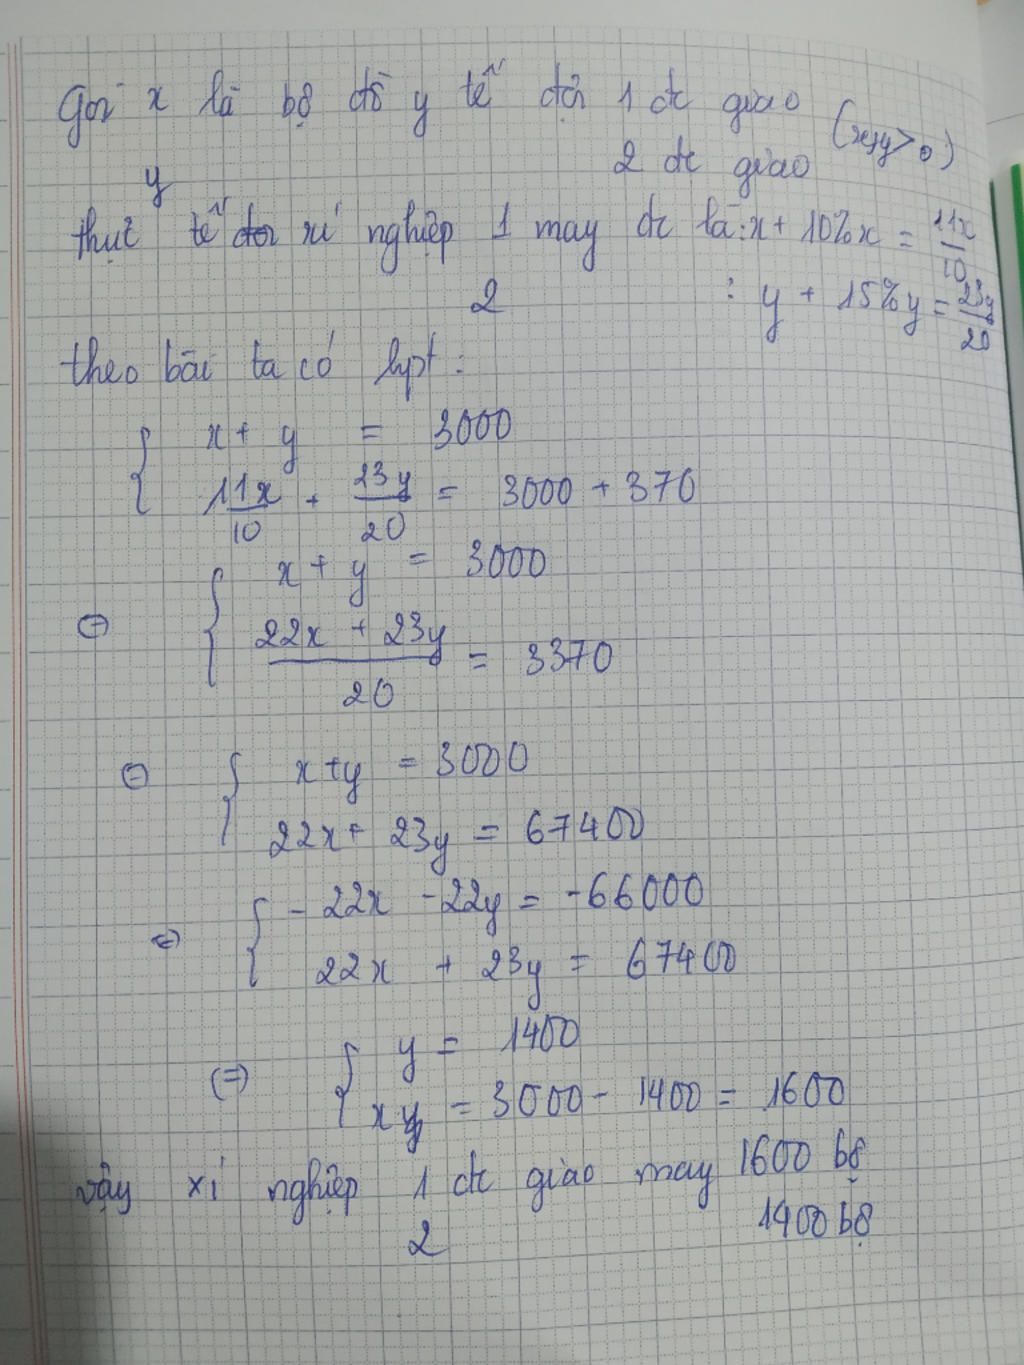 Gọi x là bộ đồ y tế đội 1 đc giao (x,y>0)
y 2 đc giao
thực tế xí nghiệp 1 may đc là: x + 10%x = 11x/10
2 : y + 15%y = 23y/20
theo bài ta có hpt:
{ x + y = 3000
11x/10 + 23y/20 = 3000 + 370
⇔ { x + y = 3000
(22x + 23y)/20 = 3370
⇔ { x + y = 3000
22x + 23y = 67400
⇔ { -22x - 22y = -66000
22x + 23y = 67400
⇔ { y = 1400
x = 3000 - 1400 = 1600
vậy xí nghiệp 1 đc giao may 1600 bộ
2 1400 bộ